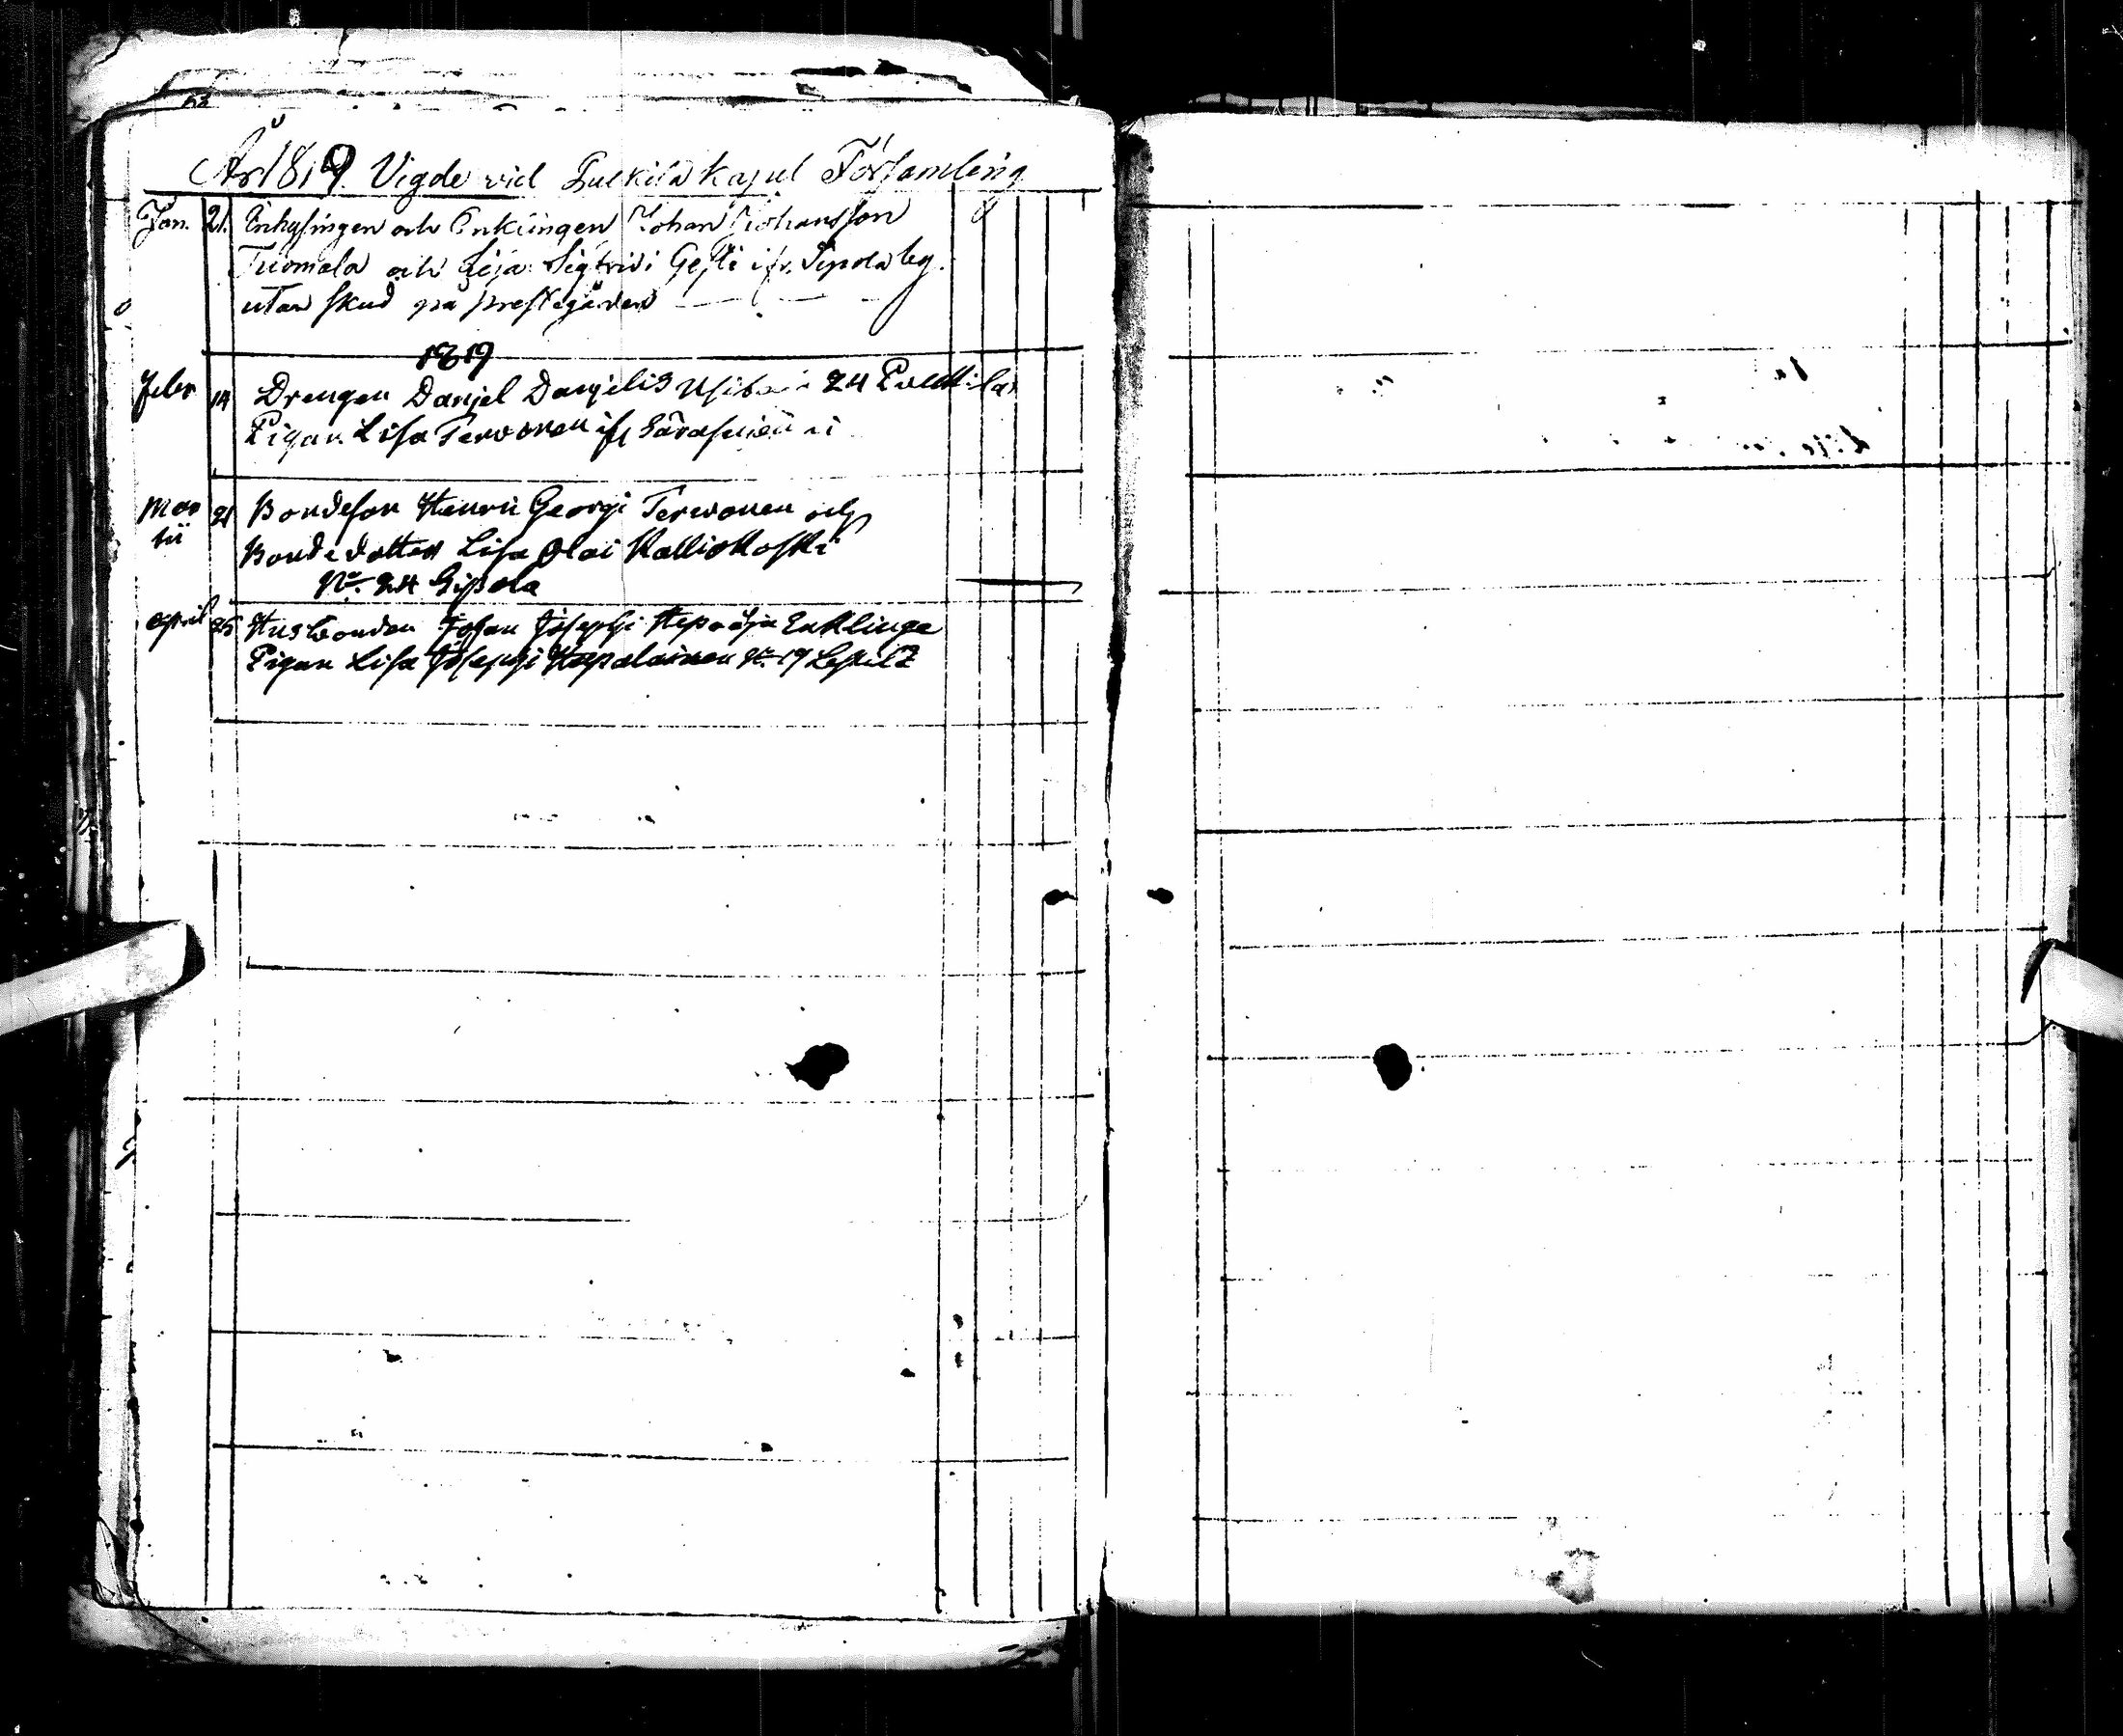 År 1819. Vigde vid Pulkila kapel Församling
Jan. 21. Inhysingen och Enklingen Johan Johansson
Tuomala och Lisa Sigfridi Gesti ifr. Sipola by.
utan skud på prestegården
1819
Febr 14 Drengen Danjel Danjelis 24 Pulkkila
Pigan Lisa Terwonen ifr
Mar
tii 21 Bondeson Henric Georgi Terwonen och
Bondedotter Lisa Olai Kalliokoski
No. 24 Sipola
April 25 Husbonden Johan Josephi Hepooja Enklinge
Pigan Lisa Josephi Hepolainen N. 19